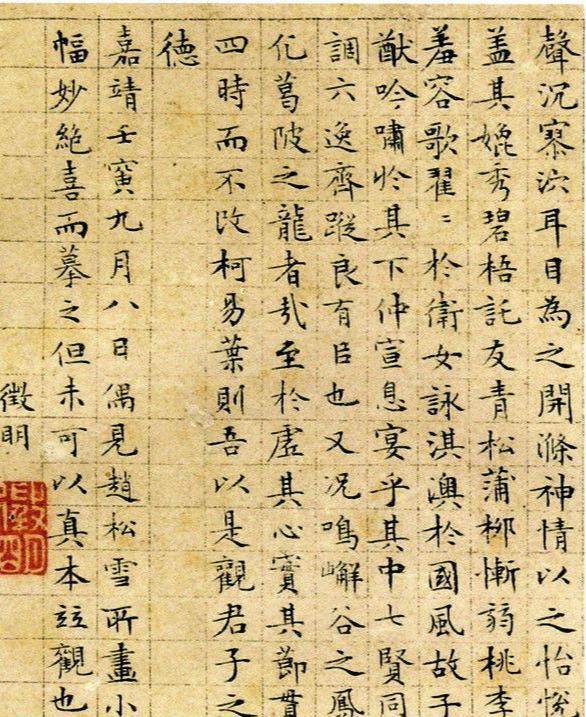 聲沉寥泬耳目為之開滌神情以之怡悅
蓋其媲秀碧梧託友青松蒲柳慚弱桃李
羞容歌翟〻於衛女詠淇澳於國風故子
猷吟嘯於其下仲宣息宴乎其中七賢同
調六逸齊蹤良有㠯也又况鳴嶰谷之鳳
化葛陂之龍者㢤至於虛其心實其節貫
四時而不改柯易葉則吾以是觀君子之
德
嘉靖壬寅九月八日偶見趙松雪所畫小
幅妙絶喜而摹之但未可以真本竝觀也
徵明
徵明